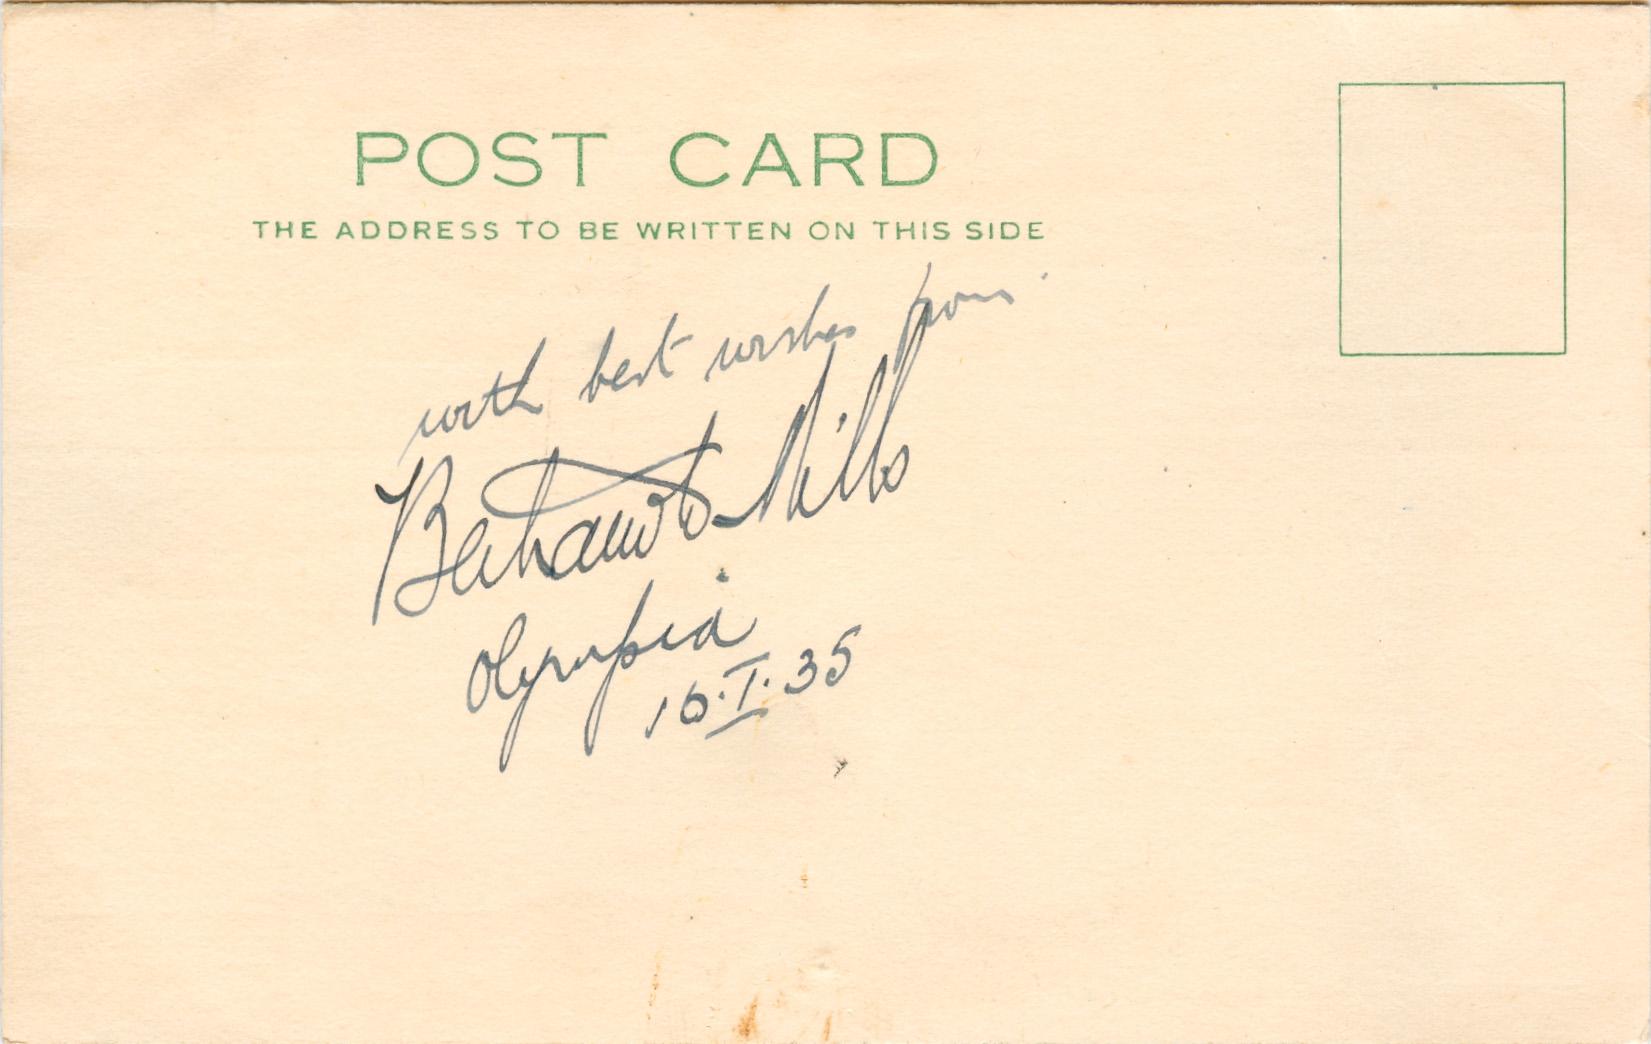 POST CARD
THE ADDRESS TO BE WRITTEN ON THIS SIDE
with best wishes from
Bertram W Mills
Olympia
16.I.35